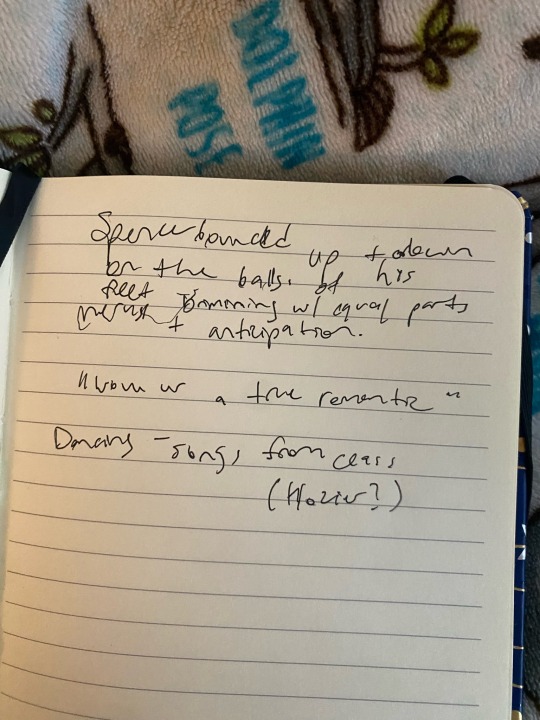 DOLPHIN
POSE
Spencer bounced up + down
on the balls of his
feet brimming w/ equal parts
+ anticipation.
" a true romantic "
Dancing - songs from class
(Hozier?)